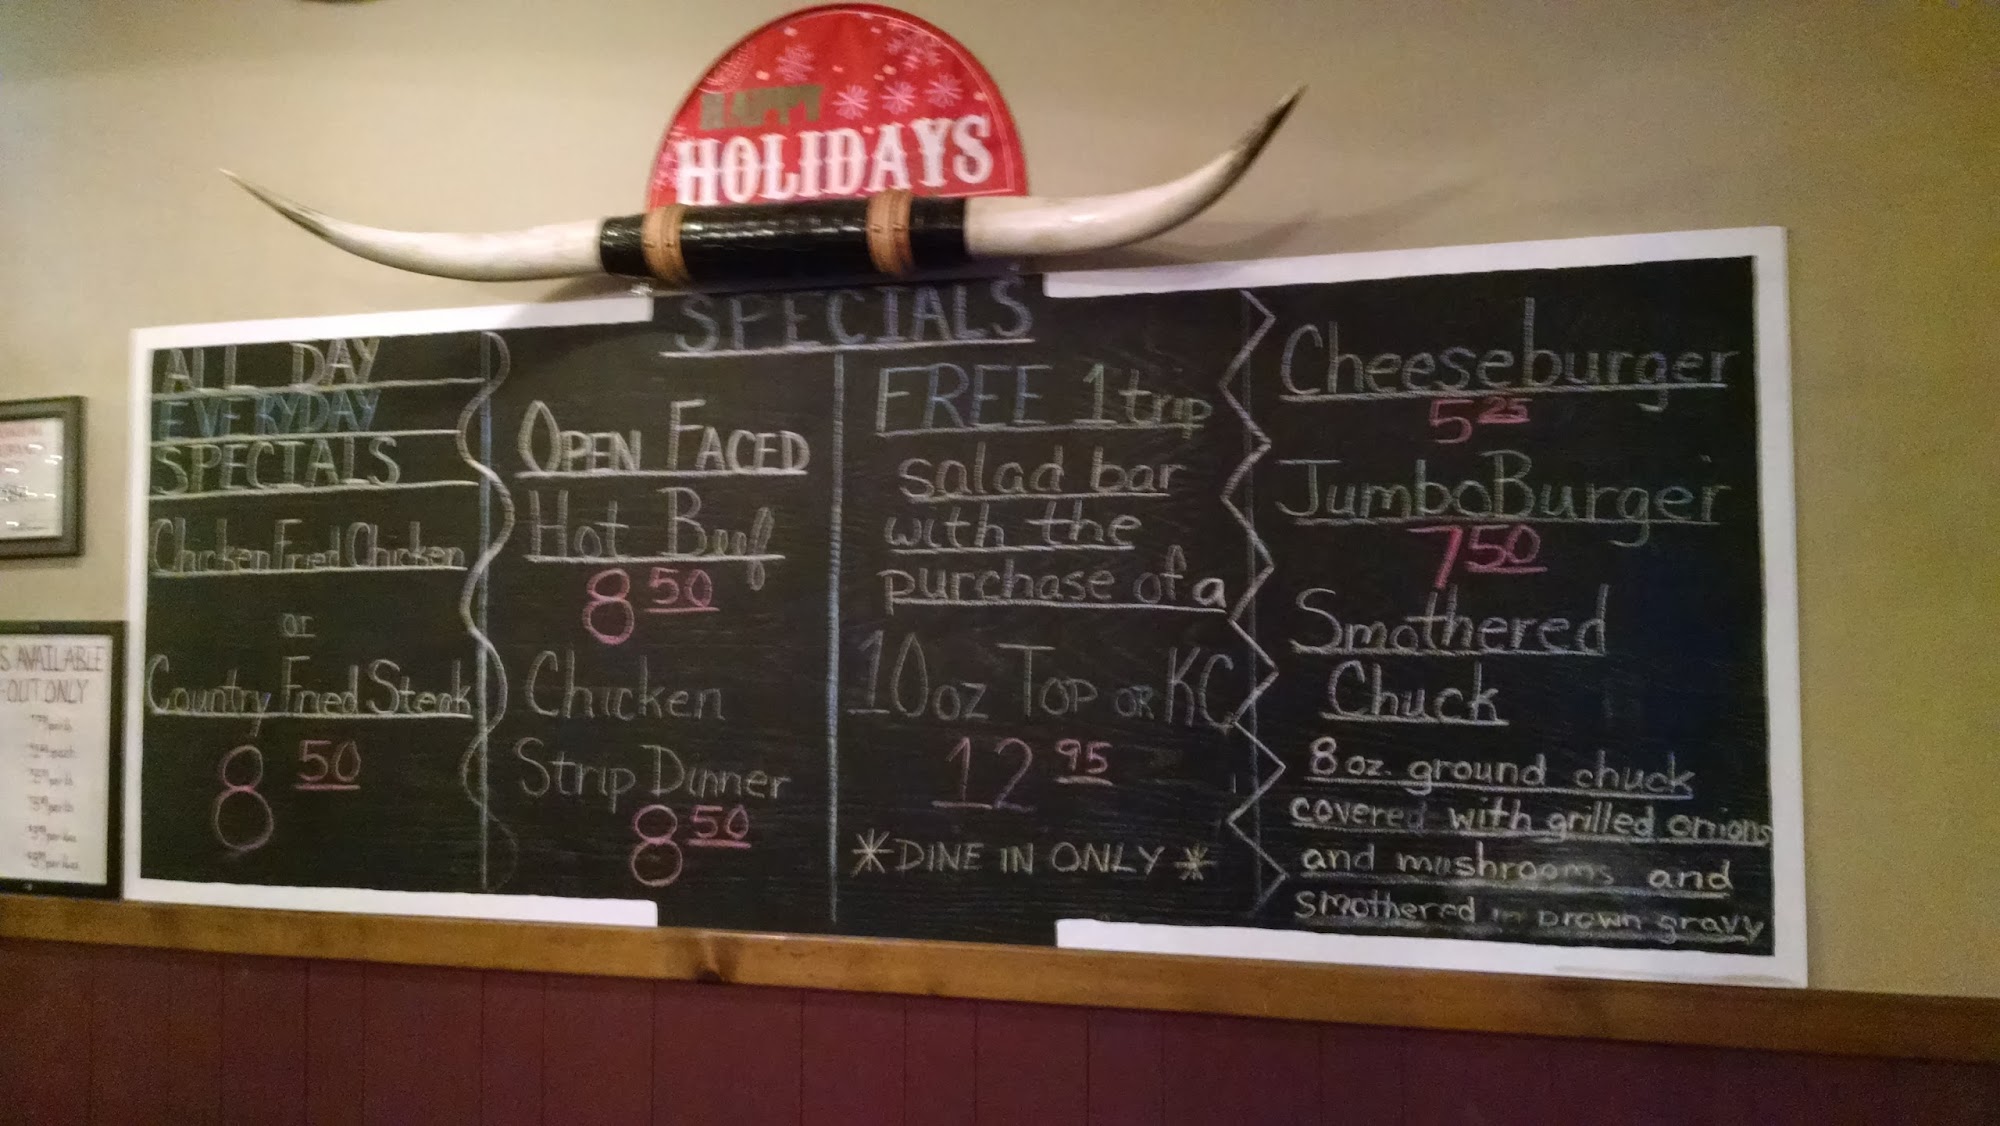 HAPPY
HOLIDAYS
SPECIALS
ALL DAY
EVERYDAY
SPECIALS
Chicken Fried Chicken
or
Country Fried Steak
8 50
OPEN FACED
Hot Beef
8 50
Chicken
Strip Dinner
8 50
FREE 1 trip
salad bar
with the
purchase of a
10 oz TOP OR KC
12 95
*DINE IN ONLY*
Cheeseburger
5 25
JumboBurger
7 50
Smothered
Chuck
8 oz. ground chuck
covered with grilled onions
and mushrooms and
smothered in brown gravy
S AVAILABLE
OUT ONLY